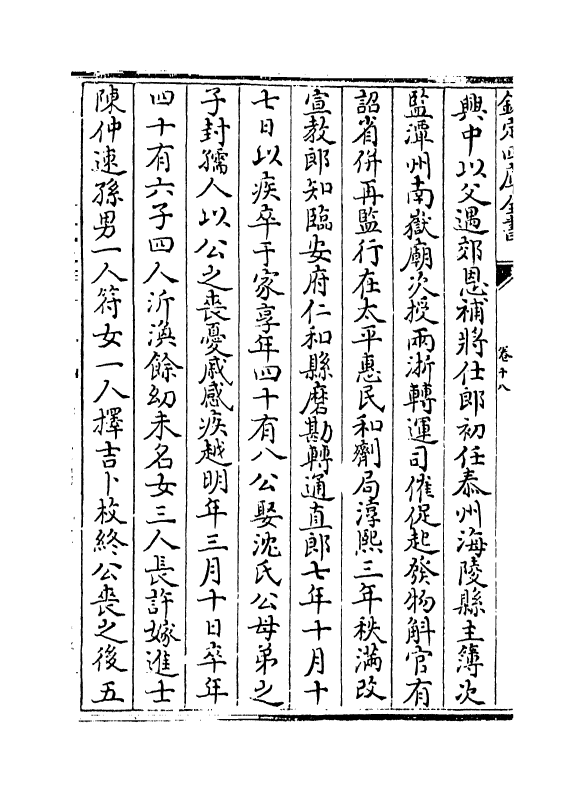 欽定四庫全書
卷十八
興中以父遇郊恩補將仕郎初任泰州海陵縣主簿次
監潭州南嶽廟次授兩浙轉運司催促起發物斛官有
詔省併再監行在太平惠民和劑局淳熙三年秩滿改
宣教郎知臨安府仁和縣磨勘轉通直郎七年十月十
七日以疾卒于家享年四十有八公娶沈氏公母弟之
子封孺人以公之喪憂戚感疾越明年三月十日卒年
四十有六子四人沂渙餘幼未名女三人長許嫁進士
陳仲連孫男一人符女一人擇吉卜枚終公喪之後五